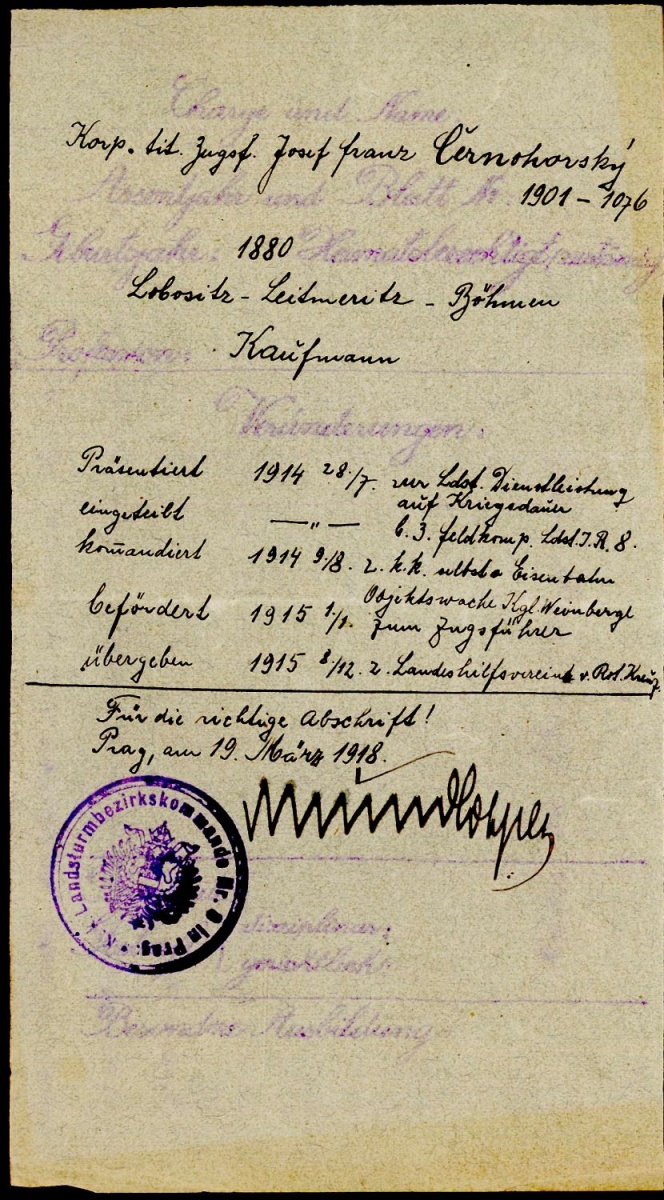 Charge und Name:
Korp. tit. Zugsf. Josef Franz Černohorský
Assentjahr und Blatt Nr: 1901 - 1076
Geburtsjahr: 1880 Heimatsberechtigt
Lobositz - Leitmeritz - Böhmen
Profession: Kaufmann
Veränderungen:
Präsentiert 1914 28./7. zur Ldst. Dienstleistung
auf Kriegsdauer
eingeteilt — „ — b. 3. Feldkomp. Ldst. I. R. 8.
kom̄andiert 1914 9./8. z. k.k. selbst. Eisenbahn
Objektswache Kgl. Weinberge
befördert 1915 1./1. zum Zugsführer
übergeben 1915 8./12. z. Landeshilfsverein v. Rot. Kreuz.
Für die richtige Abschrift!
Prag, am 19. März 1918.
K.k. Landsturmbezirkskommando Nr. 8 in Prag
disziplinar:
gerichtlich:
Besondere Ausbildung